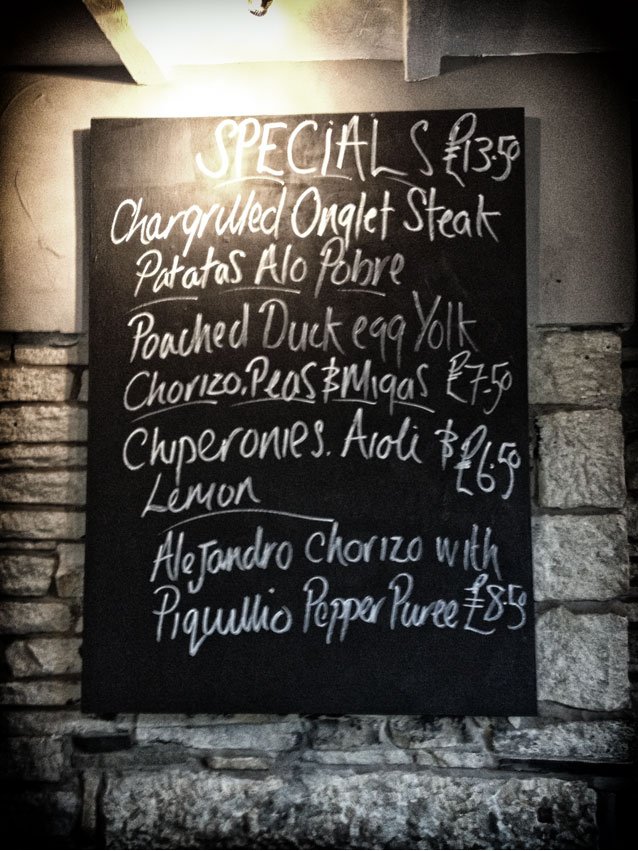 SPECIALS £13.50
Chargrilled Onglet Steak
Patatas Alo Pobre
Poached Duck egg Yolk
Chorizo, Peas & Migas £7.50
Chiperonies. Aioli & £6.50
Lemon
Alejandro Chorizo with
Piquillio Pepper Puree £8.50